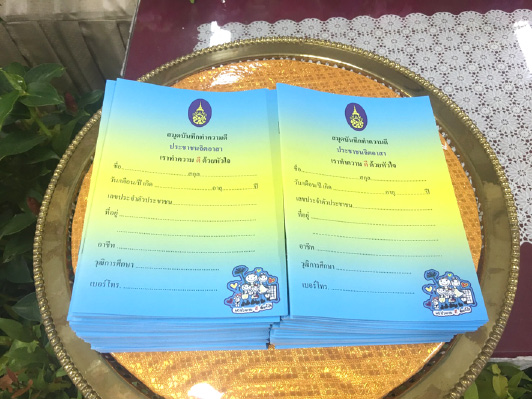 สมุดบันทึกทำความดี
ประชาชนจิตอาสา
เราทำความ ดี ด้วยหัวใจ
ชื่อ........................สกุล........................
วัน/เดือน/ปี เกิด........................อายุ...............ปี
เลขประจำตัวประชาชน........................
ที่อยู่........................
อาชีพ........................
วุฒิการศึกษา........................
เบอร์โทร........................
สมุดบันทึกทำความดี
ประชาชนจิตอาสา
เราทำความ ดี ด้วยหัวใจ
ชื่อ........................สกุล........................
วัน/เดือน/ปี เกิด........................อายุ...............ปี
เลขประจำตัวประชาชน........................
ที่อยู่........................
อาชีพ........................
วุฒิการศึกษา........................
เบอร์โทร........................